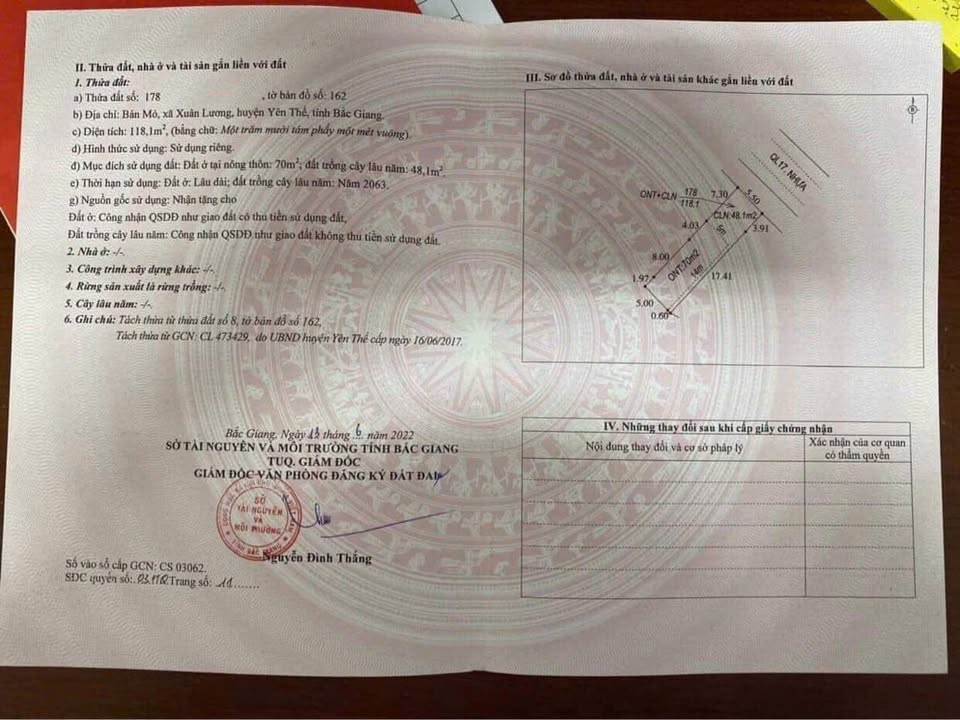 II. Thửa đất, nhà ở và tài sản gắn liền với đất
1. Thửa đất:
a) Thửa đất số: 178 , tờ bản đồ số: 162
b) Địa chỉ: Bản Mỏ, xã Xuân Lương, huyện Yên Thế, tỉnh Bắc Giang.
c) Diện tích: 118,1m², (bằng chữ: Một trăm mười tám phẩy một mét vuông).
d) Hình thức sử dụng: Sử dụng riêng.
đ) Mục đích sử dụng đất: Đất ở tại nông thôn: 70m²; đất trồng cây lâu năm: 48,1m².
e) Thời hạn sử dụng: Đất ở: Lâu dài; đất trồng cây lâu năm: Năm 2063.
g) Nguồn gốc sử dụng: Nhận tặng cho
Đất ở: Công nhận QSDĐ như giao đất có thu tiền sử dụng đất,
Đất trồng cây lâu năm: Công nhận QSDĐ như giao đất không thu tiền sử dụng đất.
2. Nhà ở: -/-.
3. Công trình xây dựng khác: -/-.
4. Rừng sản xuất là rừng trồng: -/-.
5. Cây lâu năm: -/-.
6. Ghi chú: Tách thửa từ thửa đất số 8, tờ bản đồ số 162,
Tách thửa từ GCN: CL 473429, do UBND huyện Yên Thế cấp ngày 16/06/2017.
Bắc Giang, Ngày 13 tháng 6 năm 2022
SỞ TÀI NGUYÊN VÀ MÔI TRƯỜNG TỈNH BẮC GIANG
TUQ. GIÁM ĐỐC
GIÁM ĐỐC VĂN PHÒNG ĐĂNG KÝ ĐẤT ĐAI
SỞ
TÀI NGUYÊN
VÀ
MÔI TRƯỜNG
TỈNH BẮC GIANG
Nguyễn Đình Thắng
Số vào sổ cấp GCN: CS 03062.
SĐC quyển số: Trang số: 11
III. Sơ đồ thửa đất, nhà ở và tài sản khác gắn liền với đất
B
QL17, NHỰA
ONT+CLN 178
118.1
7.30
5.50
CLN:48.1m2
4.03
5m
3.91
8.00
ONT:70m2
14m
17.41
1.97
5.00
0.60
IV. Những thay đổi sau khi cấp giấy chứng nhận
Nội dung thay đổi và cơ sở pháp lý
Xác nhận của cơ quan
có thẩm quyền